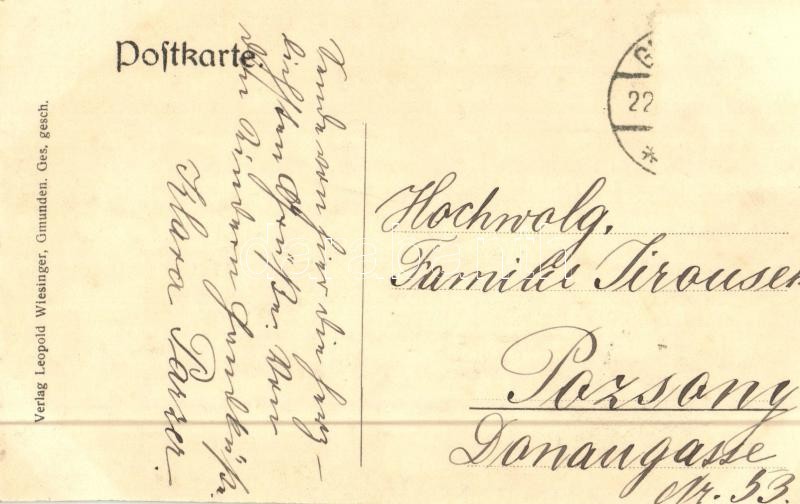 Postkarte.
Verlag Leopold Wiesinger, Gmunden. Ges. gesch.
Sende von hier die herz-
lichsten Grüße. Von
den Kindern Handküße.
Klara Parrer.
G
22
*
Hochwolg.
Familie Jirousek
Pozsony
Donaugasse
Nr. 53.